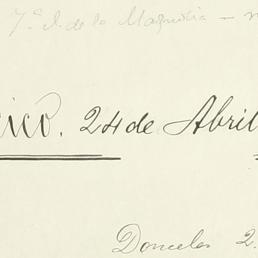 7ª C. de la Magnolia –
xico. 24 de Abril
Donceles 2.